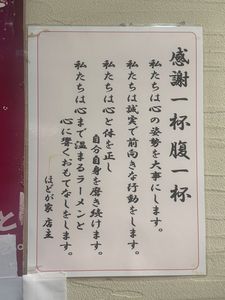 感謝一杯腹一杯
私たちは心の姿勢を大事にします。
私たちは誠実で前向きな行動をします。
私たちは心と体を正し
自分自身を磨き続けます。
私たちは心まで温まるラーメンと
心に響くおもてなしをします。
ほどが家 店主
と